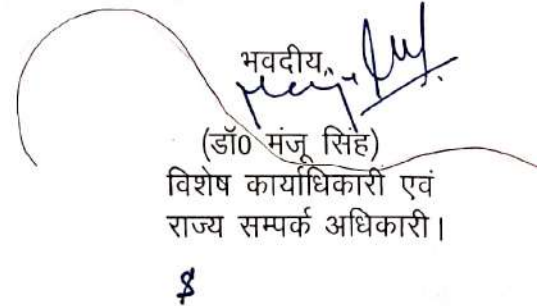 भवदीय,
(डॉ0 मंजू सिंह)
विशेष कार्याधिकारी एवं
राज्य सम्पर्क अधिकारी।